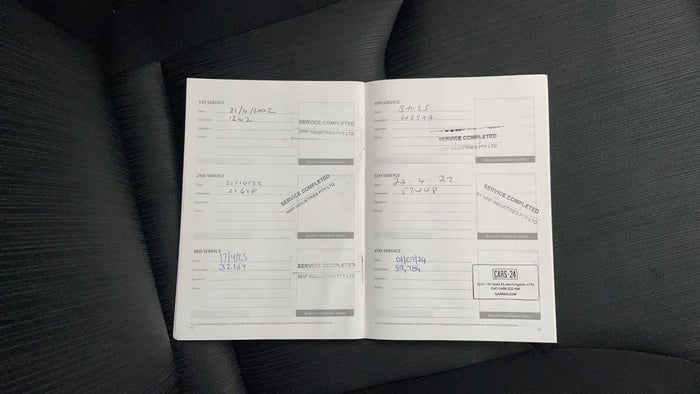 1ST SERVICE
Date: 21/4/2022
Odometer: 1242
Signature:
Notes:
SERVICE COMPLETED
MRP INDUSTRIES PTY LTD
Repairer Validation Stamp
2ND SERVICE
Date: 21/10/22
Odometer: 21658
Signature:
Notes:
SERVICE COMPLETED
MRP INDUSTRIES PTY LTD
Repairer Validation Stamp
3RD SERVICE
Date:
Odometer: 32164
Signature:
Notes:
SERVICE COMPLETED
MRP INDUSTRIES PTY LTD
Repairer Validation Stamp
4TH SERVICE
Date:
Odometer:
Signature:
Notes:
SERVICE COMPLETED
MRP INDUSTRIES PTY LTD
Repairer Validation Stamp
5TH SERVICE
Date: 22.4.22
Odometer: 57448
Signature:
Notes:
SERVICE COMPLETED
INDUSTRIES PTY LTD
Repairer Validation Stamp
6TH SERVICE
Date: 01/07/24
Odometer: 59,784
Signature:
Notes:
CARS·24
CARS24.COM
Repairer Validation Stamp